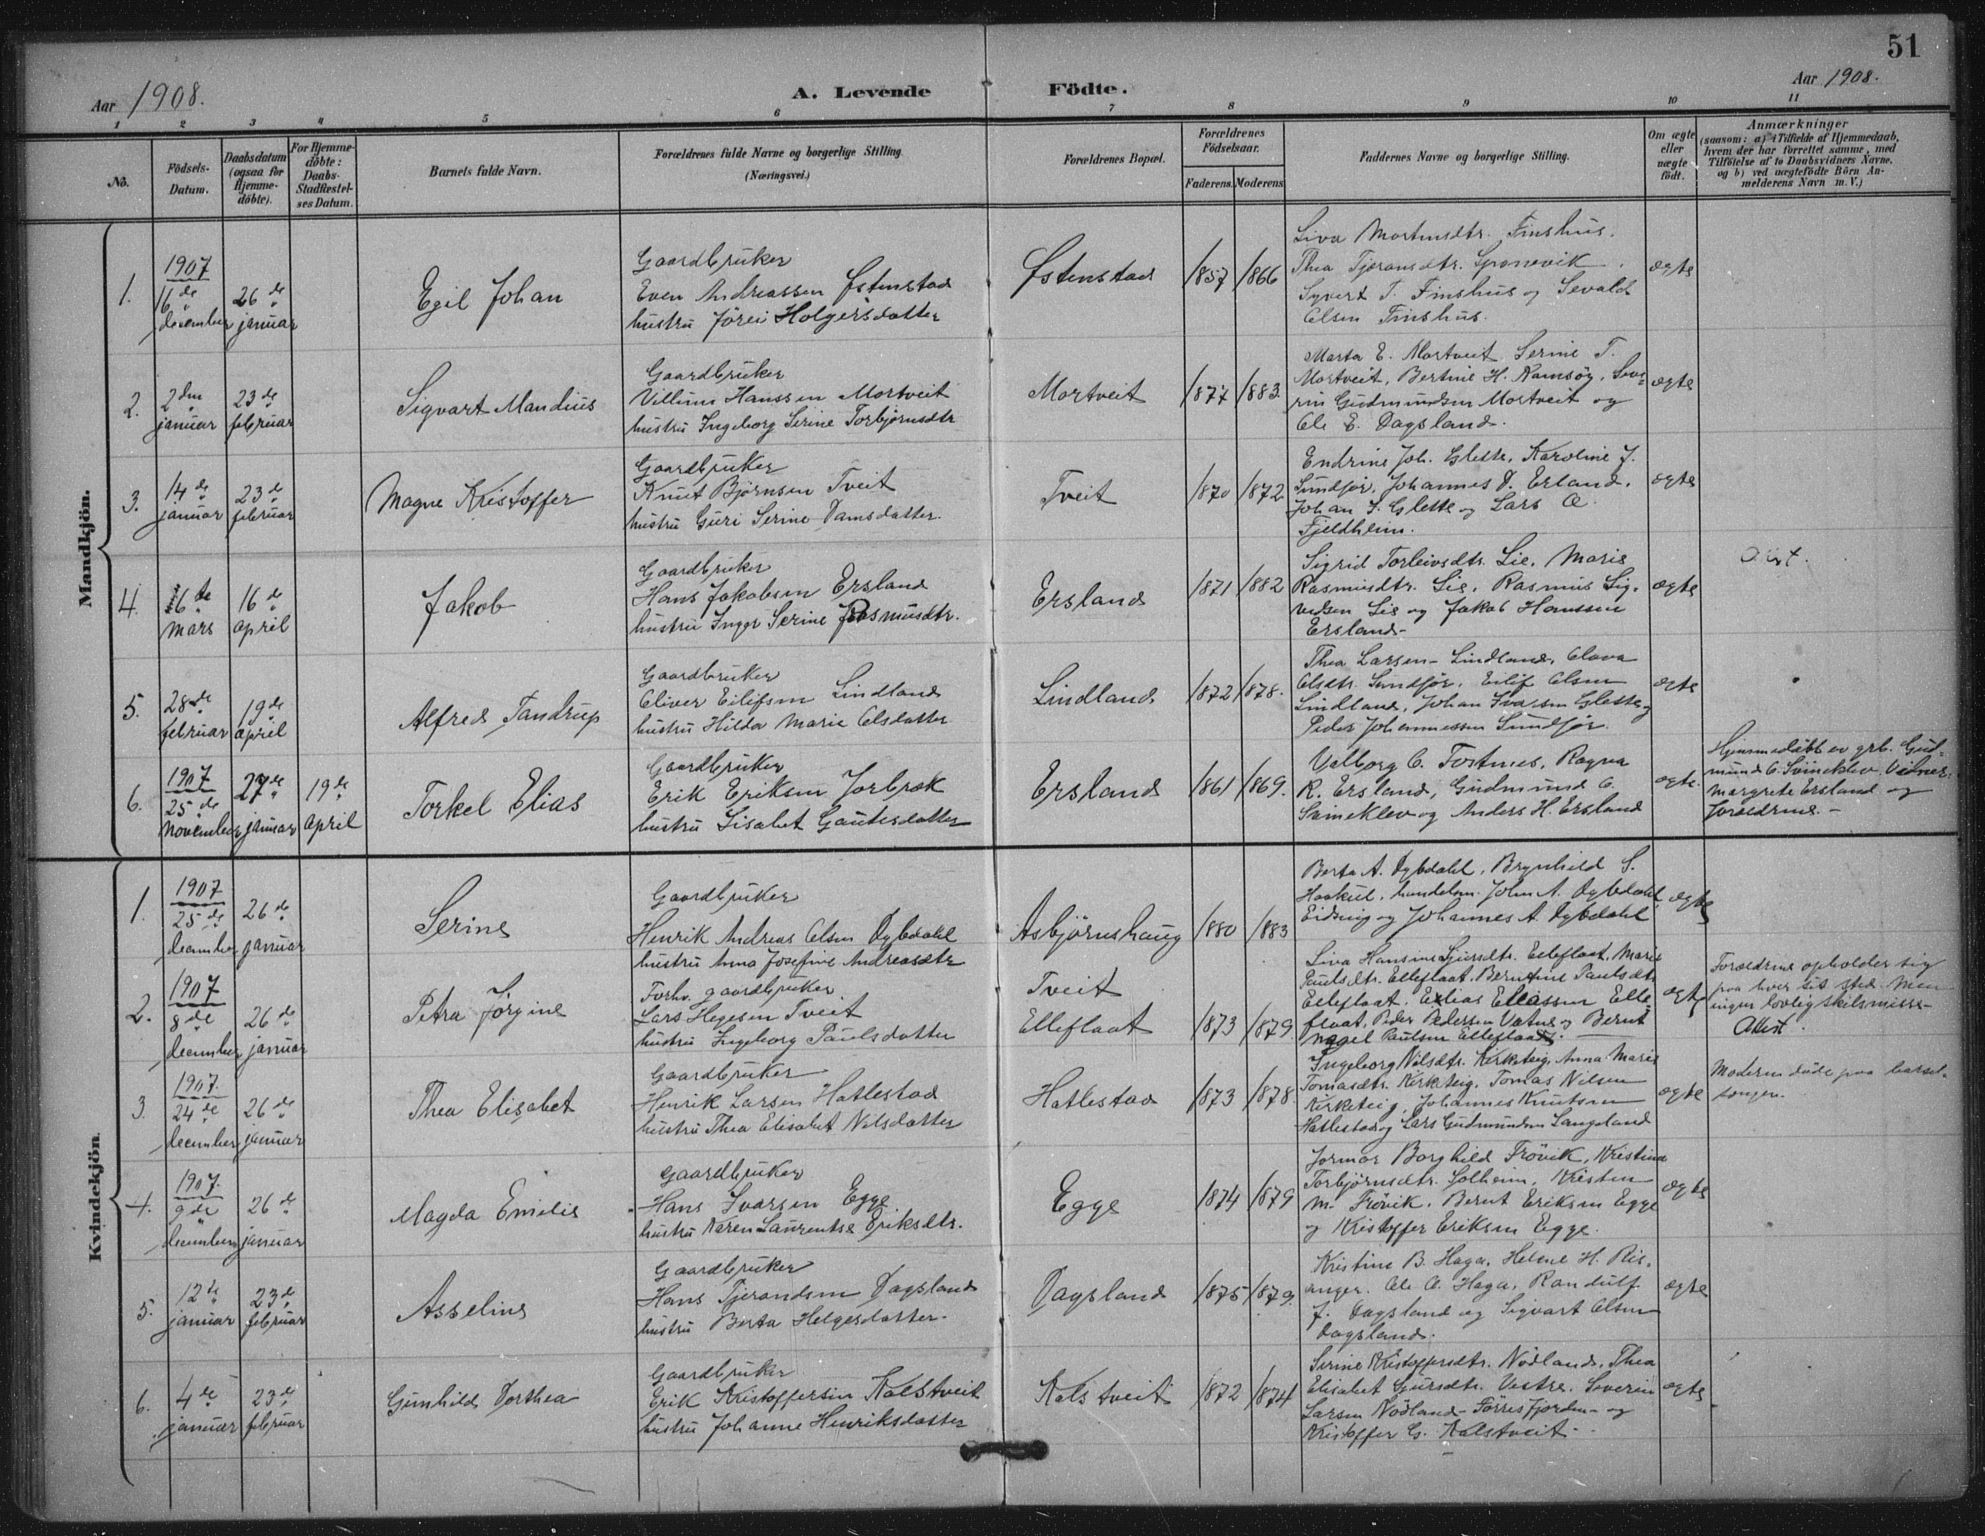 51
Aar 1908.
A. Levende Födte.
Aar 1908.
1 2 3 4 5 6 7 8 9 10 11
No.
Födsels-
Datum.
Daabsdatum
(ogsaa for
Hjemme-
döbte).
For Hjemme-
döbte:
Daabs-
Stadfæstel-
ses Datum.
Barnets fulde Navn.
Forældrenes fulde Navne og borgerlige Stilling
(Næringsvei.)
Forældrenes Bopæl.
Forældrenes
Födselsaar.
Faderens. Moderens
Faddernes Navne og borgerlige Stilling.
Om ægte
eller
uægte
födt.
Anmærkninger
(saasom: a) i Tilfælde af Hjemmedaab,
hvem der har forrettet samme, med
Tilföielse af to Daabsvidners Navne.
og b) ved uægtefödte Börn An-
melderens Navn m. V.)
Mandkjön.
1.
1907
16de
december
26de
januar
Egil Johan
Gaardbruker
Even Andreassen Østenstad
hustru Jørei Holgersdatter
Østenstad
1857 1866
Liva Mortensdtr. Finshus.
Thea Tjeransdtr. Sponevik
Syvert T. Finshus og Sevald
Olsen Finshus.
ægte
2.
2den
januar
23de
februar
Sigvart Mandius
Gaardbruker
Villum Hanssen Mortveit
hustru Ingeborg Serine Torbjørnsdtr
Mortveit
1877 1883
Marta E. Mortveit, Serine T.
Mortveit, Bertine H. Ramsøy, Seve-
rin Gudmundsen Mortveit og
Ole E. Dagsland.
ægte
3.
14de
januar
23de
februar
Magne Kristoffer
Gaardbruker
Knut Bjørnsen Tveit
hustru Guri Serine
Tveit
1870 1872
Endrine Joh. Glette, Karoline J.
Sundfør, Johannes D. Erland,
Johan I. Glette og Lars O.
Fjeldheim.
ægte
4.
16de
mars
16de
april
Jakob
Gaardbruker
Hans Jakobsen Ersland
hustru Inger Serine Rasmusdtr.
Ersland
1871 1882
Sigrid Torleivsdtr. Lie, Marie
Rasmusdtr. Lie, Rasmus Sig-
vedsen Lie og Jakob Hanssen
Ersland
ægte
Attest.
5.
28de
februar
19de
april
Alfred Tandrup
Gaardbruker
Oliver Eilifsen Lindland
hustru Hilda Marie Olsdatter
Lindland
1872 1878.
Thea Larsen Lindland, Olava
Olsdtr. Sundfør, Eilif Olsen
Lindland, Johan Ivarsen Glette og
Peder Johannessen Sundfør.
ægte
6.
1907
25de
november
27de
januar
19de
april
Torkel Elias
Gaardbruker
Erik Eriksen Jorbrek
hustru Lisabet Gautesdatter
Ersland
1861 1869.
Valborg O. Fostnes, Ragna
R. Ersland, Gudmund O.
Svineklev og Anders H. Ersland
ægte.
Hjemmedøbt av grb. Gud-
mund O. Svineklev. Vidner:
Margrete Ersland og
forældrene.
Kvindekjön.
1.
1907
25de
december
26de
januar
Serine
Gaardbruker
Henrik Andreas Olsen Dybdahl
hustru Anna Josefine Andreasdtr
Asbjørnshaug
1880 1883
Berta A. Dybdahl, Brynhild S.
Haakul, handelsm. John A. Dybdahl
og Johannes A. Dybdahl
ægte
2.
1907
8de
december
26de
januar
Petra Jørgine
Forhv. gaardbruker
Lars Hegesen Tveit
hustru Ingeborg Paulsdatter
Tveit
Elleflaat
1873 1879
Liva Hansine Sjursdtr. Elleflaat, Marie
Paulsdtr. Elleflaat, Berntine Paulsdtr
Elleflaat, Elias Eliassen Elle-
flaat, Peder Pedersen Vatne og Bernt
Magel Paulsen Elleflaat.
ægte
Forældrene opholder sig
paa hver sit sted. Men
ingen lovlig skilsmisse.
Attest.
3.
1907
24de
december
26de
januar
Thea Elisabet
Gaardbruker
Henrik Larsen Hatlestad
hustru Thea Elisabet Nilsdatter
Hatlestad
1873 1878.
Ingeborg Nilsdtr. Kirketeig, Anna Marie
Tomasdtr. Kirketeig, Tomas Nilsen
Kirketeig, Johannes Knutsen
Hatlestad og Lars Gudmundsen Langeland
ægte
Moderen døde paa barsel-
sengen.
4.
1907.
9de
december
26de
januar
Magda Emilie
Gaardbruker
Hans Ivarsen Egge
hustru Karen Laurentse Eriksdtr.
Egge
1874 1879
Jormor Borghild Frövik, Kristine
Torbjørnsdtr. Solheim, Kristen
M. Frövik, Bernt Eriksen Egge
og Kristoffer Eriksen Egge.
ægte
5.
12te
januar
23de
februar
Asseline
Gaardbruker
Hans Tjerandsen Dagsland
hustru Berta Helgesdatter.
Dagsland
1875 1879.
Kristine B. Haga, Helene H. Ris-
anger, Ole O. Haga, Randulf
J. Dagsland og Sigvart Olsen
Dagsland.
ægte
6.
4de
januar
23de
februar
Gunhild Dorthea
Gaardbruker
Erik Kristoffersen Kalstveit
hustru Johanne Henriksdatter
Kalstveit
1872 1874
Serine Kristoffersdtr. Nödland, Thea
Elisabet Sjursdtr. Vestre, Severin
Larsen Nödland Førresfjorden og
Kristoffer G. Kalstveit.
ægte